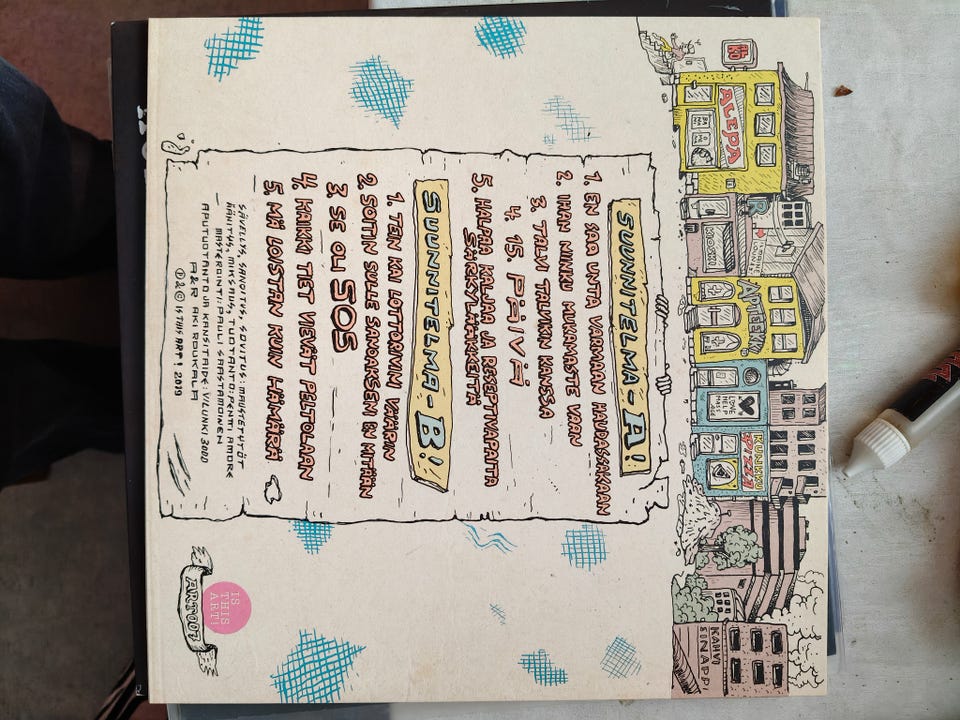 R-KIOSKI
ALEPA
KIOSKI
APTEEKKI
LOVE
HELP
MASSAGE
KUNKKU
PIZZA
KAHVI
SINAPPI
SUUNNITELMA - A!
1. EN SAA UNTA VARMAAN HAUDASSAKAAN
2. IHAN NIINKU MUKAMASTE VAAN
3. TALVI TALVIKIN KANSSA
4. 15 PÄIVÄÄ
5. HALPAA KALJAA JA RESEPTVAPAITA
SÄRKYLÄÄKKEITÄ
SUUNNITELMA - B!
1. TEN KAI LOTTORIVINI VÄÄRIN
2. SOITIN SULLE SAVOKSEN EN MITÄÄN
3. SE OLI SOS
4. KAIKKI TIET VIEVÄT PELTOLAAN
5. MÄ LOISTAN KUIN HÄMÄRÄ
SÄVELLYS, SANOITUS, SOVITUS: MAUSTETYTÖT
ÄÄNITYS, MIKSAUS, TUOTANTO: PENTI AMORE
MASTEROINTI: PAULI SAASTAMOINEN
APUTUOTANTO JA KANSITAIDE: VILUNKI 3000
A&R AKI ROUKALA
℗&© IS THIS ART! 2019
IS
THIS
ART!
ART007